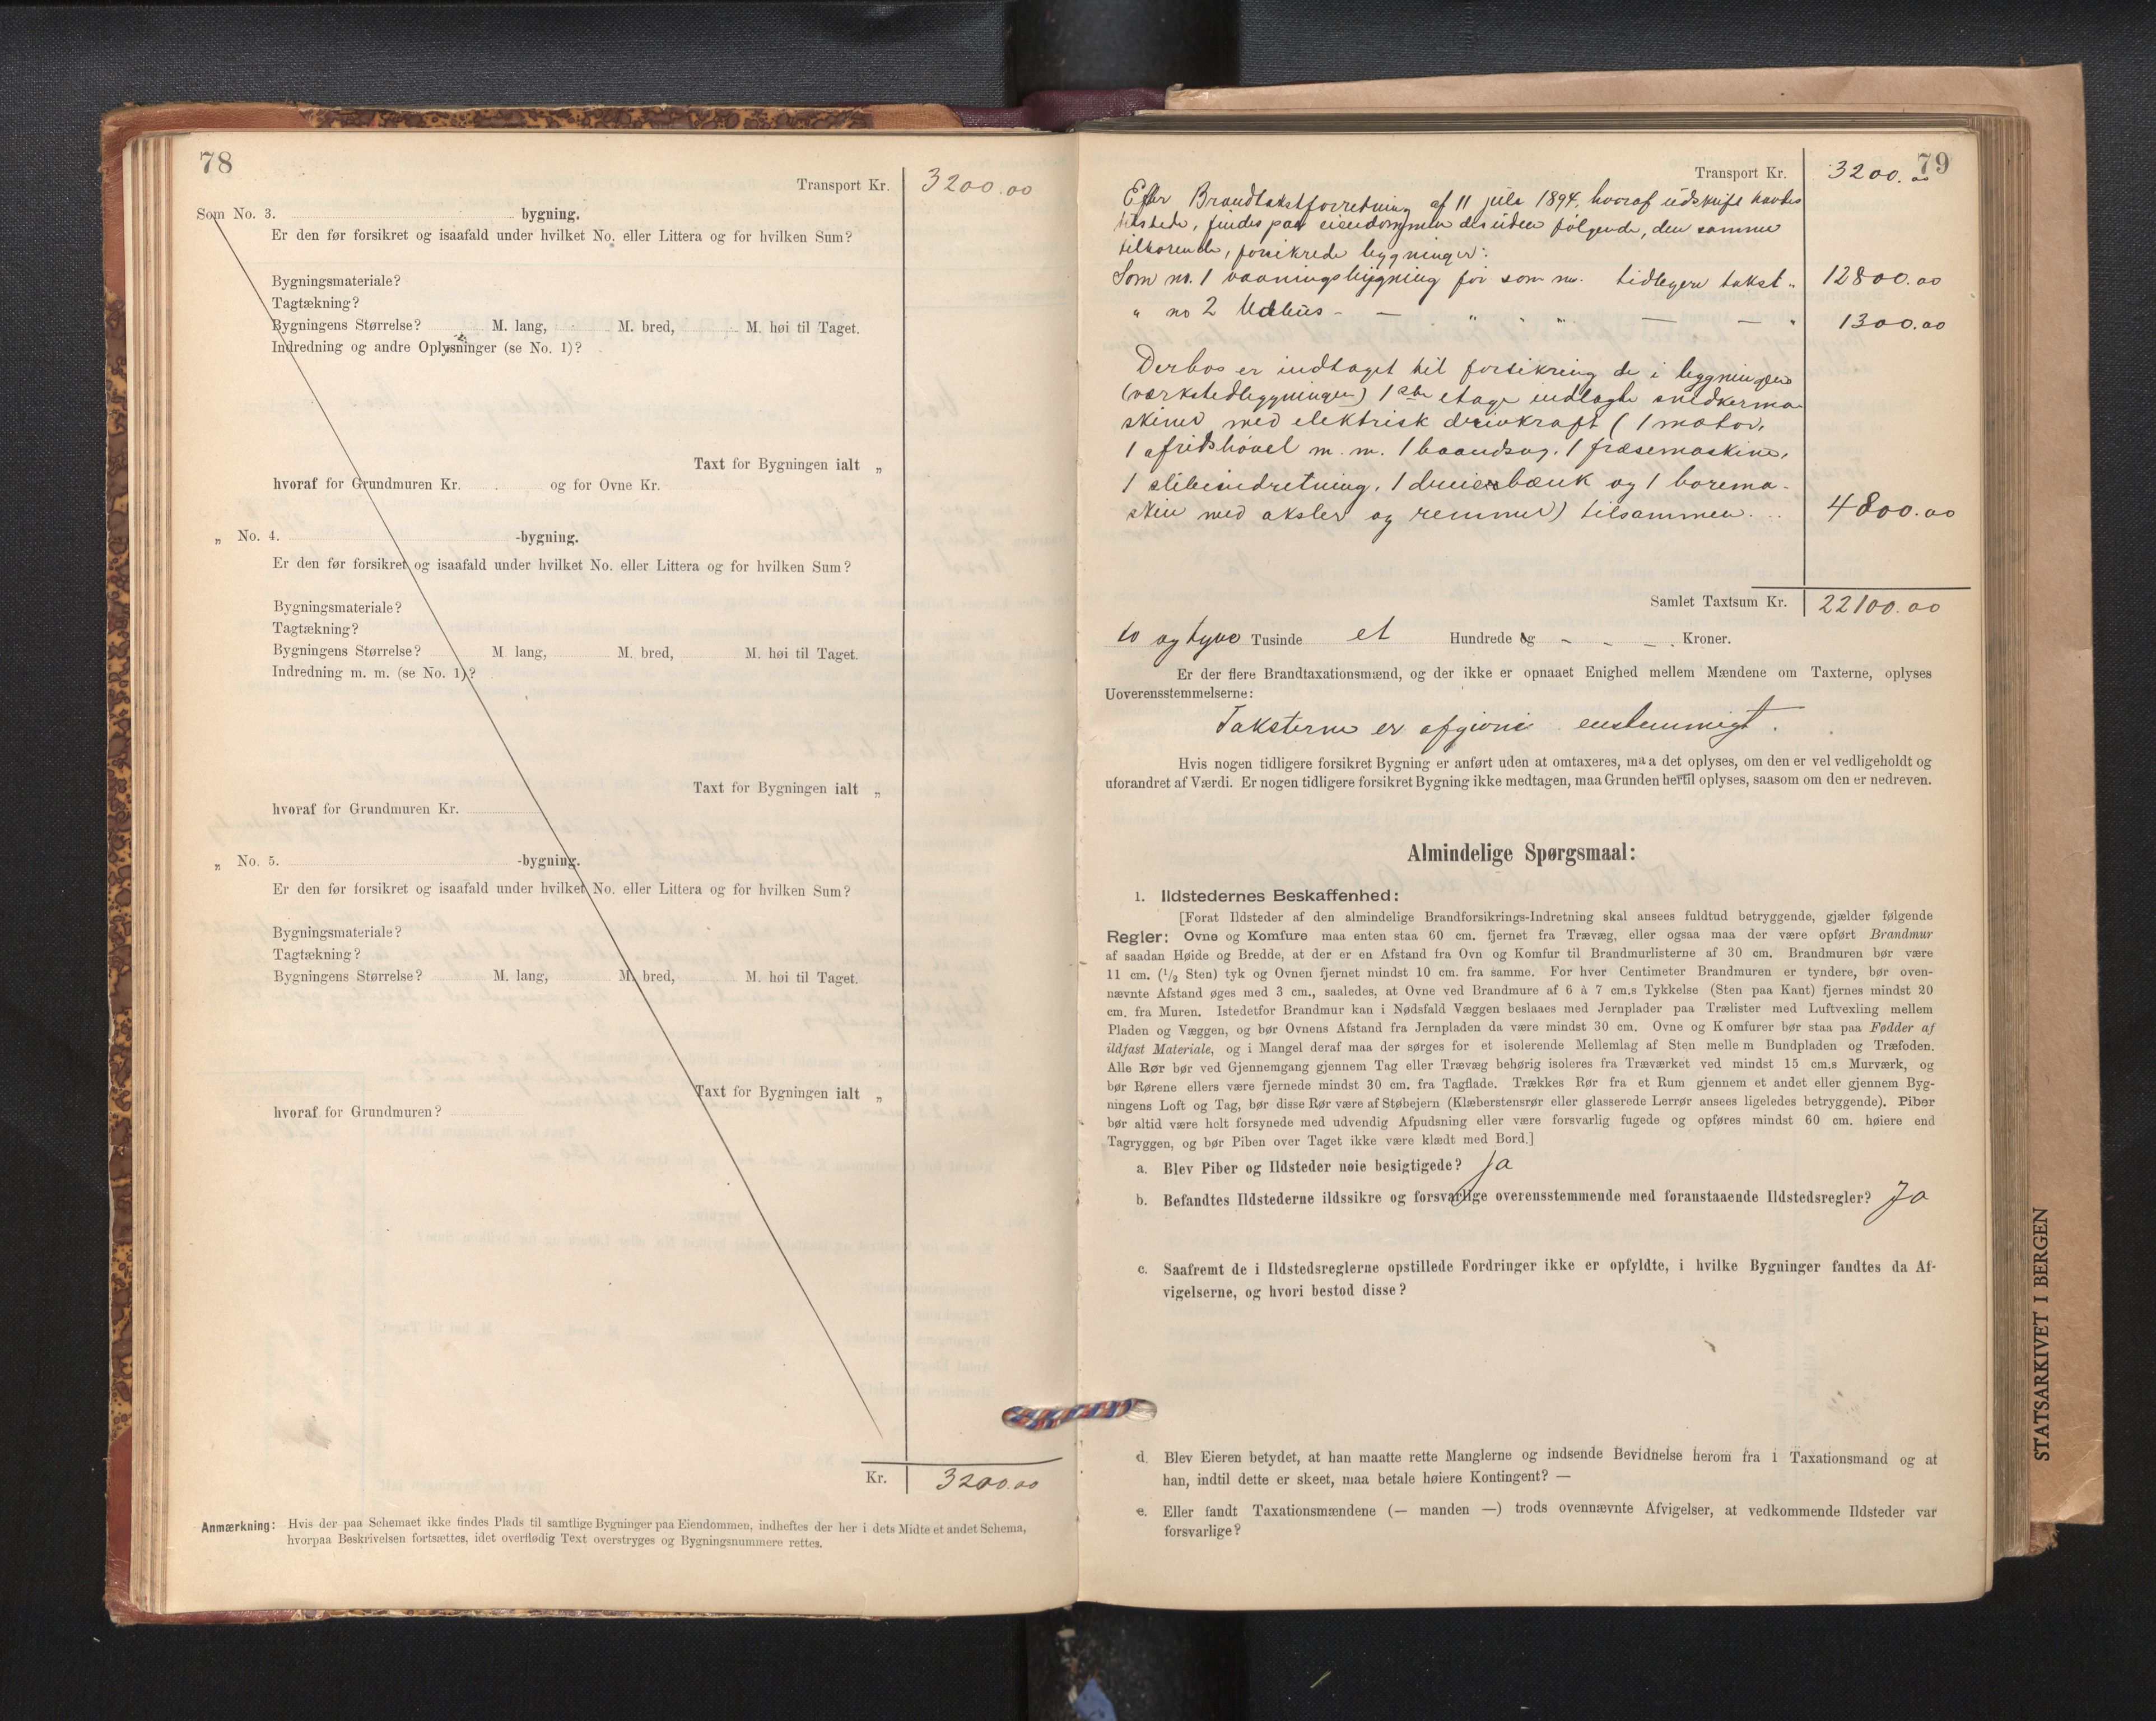 78
Transport Kr. 3200.00
Som No. 3. bygning.
Er den før forsikret og isaafald under hvilket No. eller Littera og for hvilken Sum?
Bygningsmateriale?
Tagtækning?
Bygningens Størrelse? M. lang, M. bred, M. høi til Taget.
Indredning og andre Oplysninger (se No. 1)?
Taxt for Bygningen ialt „
hvoraf for Grundmuren Kr. og for Ovne Kr.
„ No. 4. -bygning.
Er den før forsikret og isaafald under hvilket No. eller Littera og for hvilken Sum?
Bygningsmateriale?
Tagtækning?
Bygningens Størrelse? M. lang, M. bred, M. høi til Taget.
Indredning m. m. (se No. 1)?
Taxt for Bygningen ialt „
hvoraf for Grundmuren Kr.
„ No. 5. -bygning.
Er den før forsikret og isaafald under hvilket No. eller Littera og for hvilken Sum?
Bygningsmateriale?
Tagtækning?
Bygningens Størrelse? M. lang, M. bred, M. høi til Taget.
Taxt for Bygningen ialt „
hvoraf for Grundmuren?
Kr. 3200.00
Anmærkning: Hvis der paa Schemaet ikke findes Plads til samtlige Bygninger paa Eiendommen, indheftes der her i dets Midte et andet Schema,
hvorpaa Beskrivelsen fortsættes, idet overflødig Text overstryges og Bygningsnummere rettes.
79
Transport Kr. 3200.00
Efter Brandtakstforretning af 11 juli 1894, hvoraf udskrift havdes
tilstede, findes paa eiendommen desuden følgende, den samme
tilhørende, forsikrede bygninger:
Som no. 1 vaaningsbygning før som no. tidligere takst „ 12800.00
„ no 2 Udhus - — „ „ „ — — „ 1300.00
Derhos er indtaget til forsikring de i bygningens
(værkstedbygningen) 1ste etage indlagte snedkerma-
skiner med elektrisk drivkraft (1 motor,
1 afretshøvel m. m. 1 baandsag, 1 fræsemaskine,
1 slibeindretning, 1 dreierbænk og 1 borema-
skin med aksler og remmer) tilsammen . . . 4800.00
Samlet Taxtsum Kr. 22100.00
to og tyve Tusinde et Hundrede og - - - . Kroner.
Er der flere Brandtaxationsmænd, og der ikke er opnaaet Enighed mellem Mændene om Taxterne, oplyses
Uoverensstemmelserne:
Taksterne er afgivne enstemmigt.
Hvis nogen tidligere forsikret Bygning er anført uden at omtaxeres, maa det oplyses, om den er vel vedligeholdt og
uforandret af Værdi. Er nogen tidligere forsikret Bygning ikke medtagen, maa Grunden hertil oplyses, saasom om den er nedreven.
Almindelige Spørgsmaal:
1. Ildstedernes Beskaffenhed:
[Forat Ildsteder af den almindelige Brandforsikrings-Indretning skal ansees fuldtud betryggende, gjælder følgende
Regler: Ovne og Komfure maa enten staa 60 cm. fjernet fra Trævæg, eller ogsaa maa der være opført Brandmur
af saadan Høide og Bredde, at der er en Afstand fra Ovn og Komfur til Brandmurlisterne af 30 cm. Brandmuren bør være
11 cm. (1/2 Sten) tyk og Ovnen fjernet mindst 10 cm. fra samme. For hver Centimeter Brandmuren er tyndere, bør oven-
nævnte Afstand øges med 3 cm., saaledes, at Ovne ved Brandmure af 6 à 7 cm.s Tykkelse (Sten paa Kant) fjernes mindst 20
cm. fra Muren. Istedetfor Brandmur kan i Nødsfald Væggen beslaaes med Jernplader paa Trælister med Luftvexling mellem
Pladen og Væggen, og bør Ovnens Afstand fra Jernpladen da være mindst 30 cm. Ovne og Komfurer bør staa paa Fødder af
ildfast Materiale, og i Mangel deraf maa der sørges for et isolerende Mellemlag af Sten mellem Bundpladen og Træfoden.
Alle Rør bør ved Gjennemgang gjennem Tag eller Trævæg behørig isoleres fra Træværket ved mindst 15 cm.s Murværk, og
bør Rørene ellers være fjernede mindst 30 cm. fra Tagflade. Trækkes Rør fra et Rum gjennem et andet eller gjennem Byg-
ningens Loft og Tag, bør disse Rør være af Støbejern (Klæberstensrør eller glasserede Lerrør ansees ligeledes betryggende). Piber
bør altid være helt forsynede med udvendig Afpudsning eller være forsvarlig fugede og opføres mindst 60 cm. høiere end
Tagryggen, og bør Piben over Taget ikke være klædt med Bord.]
a. Blev Piber og Ildsteder nøie besigtigede? ja
b. Befandtes Ildstederne ildssikre og forsvarlige overensstemmende med foranstaaende Ildstedsregler? Ja
c. Saafremt de i Ildstedsreglerne opstillede Fordringer ikke er opfyldte, i hvilke Bygninger fandtes da Af-
vigelserne, og hvori bestod disse?
d. Blev Eieren betydet, at han maatte rette Manglerne og indsende Bevidnelse herom fra 1 Taxationsmand og at
han, indtil dette er skeet, maa betale høiere Kontingent? —
e. Eller fandt Taxationsmændene (— manden —) trods ovennævnte Afvigelser, at vedkommende Ildsteder var
forsvarlige?
STATSARKIVET I BERGEN